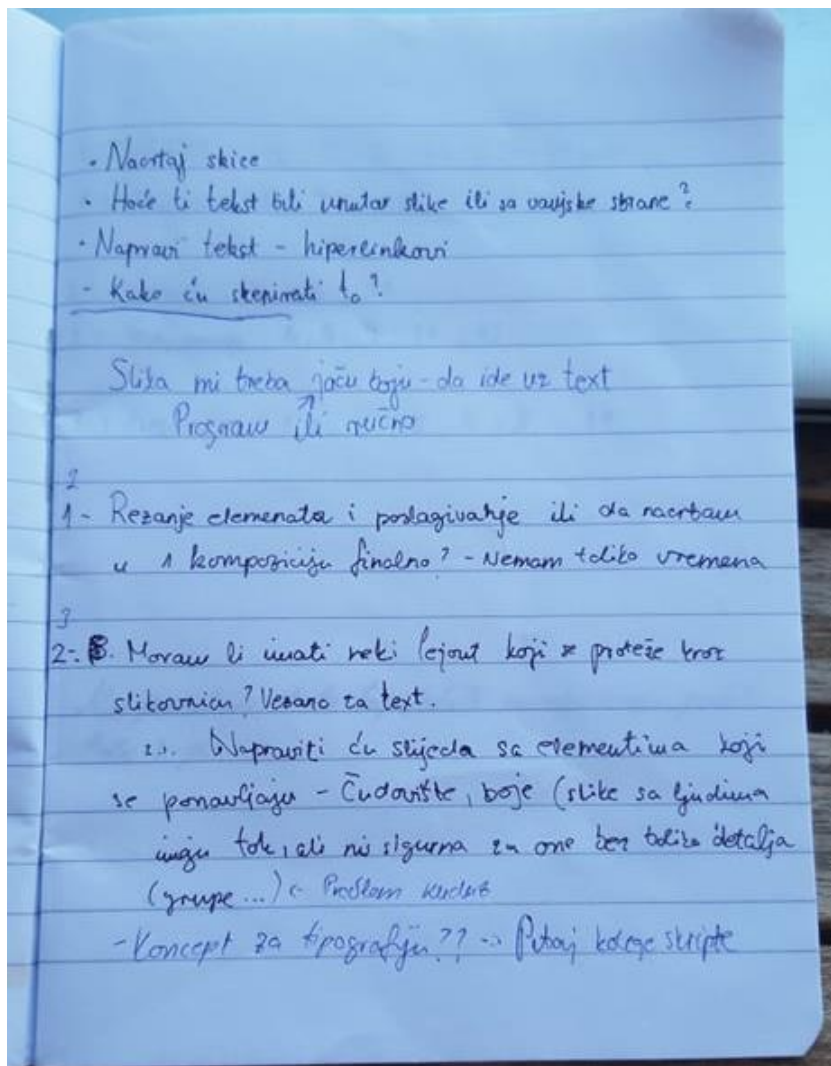 • Nacrtaj skice
• Hoće li tekst biti unutar slike ili sa vanjske strane?
• Napravi tekst - hiperlinkovi
- Kako ću skenirati to?
Slika mi treba jaču boju - da ide uz text
Program ili ručno
2
1 - Rezanje elemenata i poslagivanje ili da nacrtam
u 1 kompoziciju finalno? - Nemam toliko vremena
3
2-. Moram li imati neki lejout koji se proteže kroz
slikovnicu? Vezano za text.
Napraviti ću slijeda sa elementima koji
se ponavljaju - Čudovište, boje (slike sa ljudima
imaju tok, ali ni sigurna za one bez toliko detalja
(grupe...) <- Problem
- Koncept za tipografiju?? -> Pitaj kolege skripte